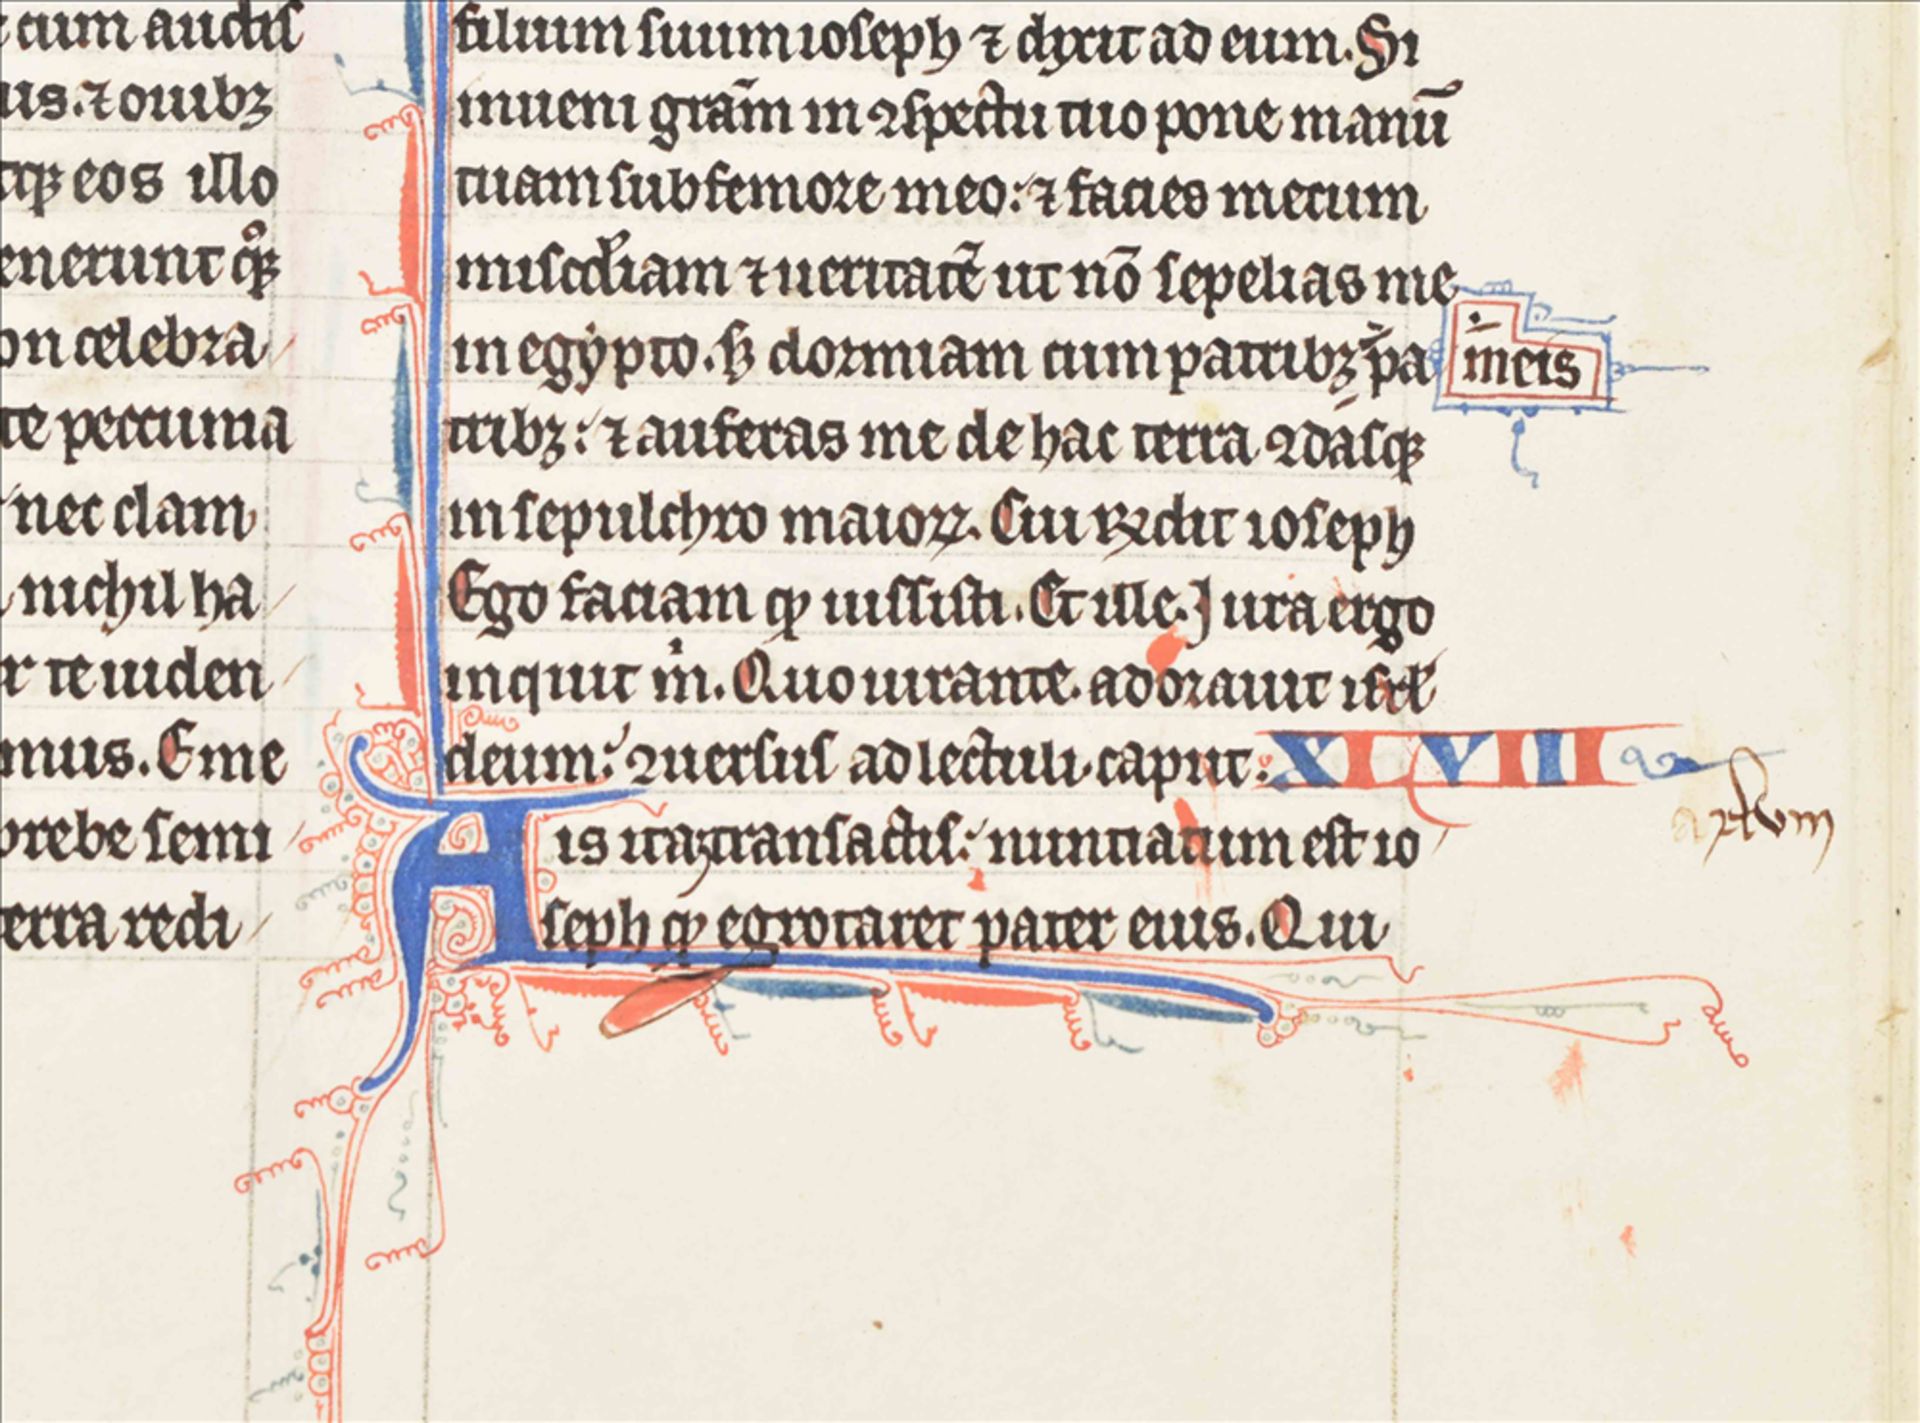 cum audis
us. ⁊ ouibꝫ
tꝗꝫ eos illo
enerunt qͦꝫ
on celebra
te peccunia
nec clam
nichil ha
r te uiden
mus. Eme
prebe semi
terra redi
filium suum ioseph ⁊ dixit ad eum. Si
inueni grām in ꝯspectu tuo pone manū
tuam sub femore meo: ⁊ facies mecum
miscdiam ⁊ ueritatē ut nō sepelias me
in egypto. sꝫ dormiam cum patribꝫ pa
meis
tribꝫ: ⁊ auferas me de hac terra ꝯdasqꝫ
in sepulchro maioꝝ. Cui Rͬdit ioseph
Ego faciam ꝙ iussisti. Et ille. Jura ergo
inquit m̍. Quo iurante. adorauit isrl̄
deum: ꝯuersus ad lectuli caput: XLVIII
His itaꝫ transactis: nuntiatum est io
seph ꝙ egrotaret pater eius. Qui